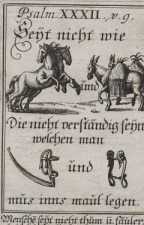 Psalm XXXII .v.9.
Seÿt nicht wie
und
Die nicht verständig seÿn
welchen man
und
müs inns maul legen.
Mensche seÿt nicht thum ü. säuler